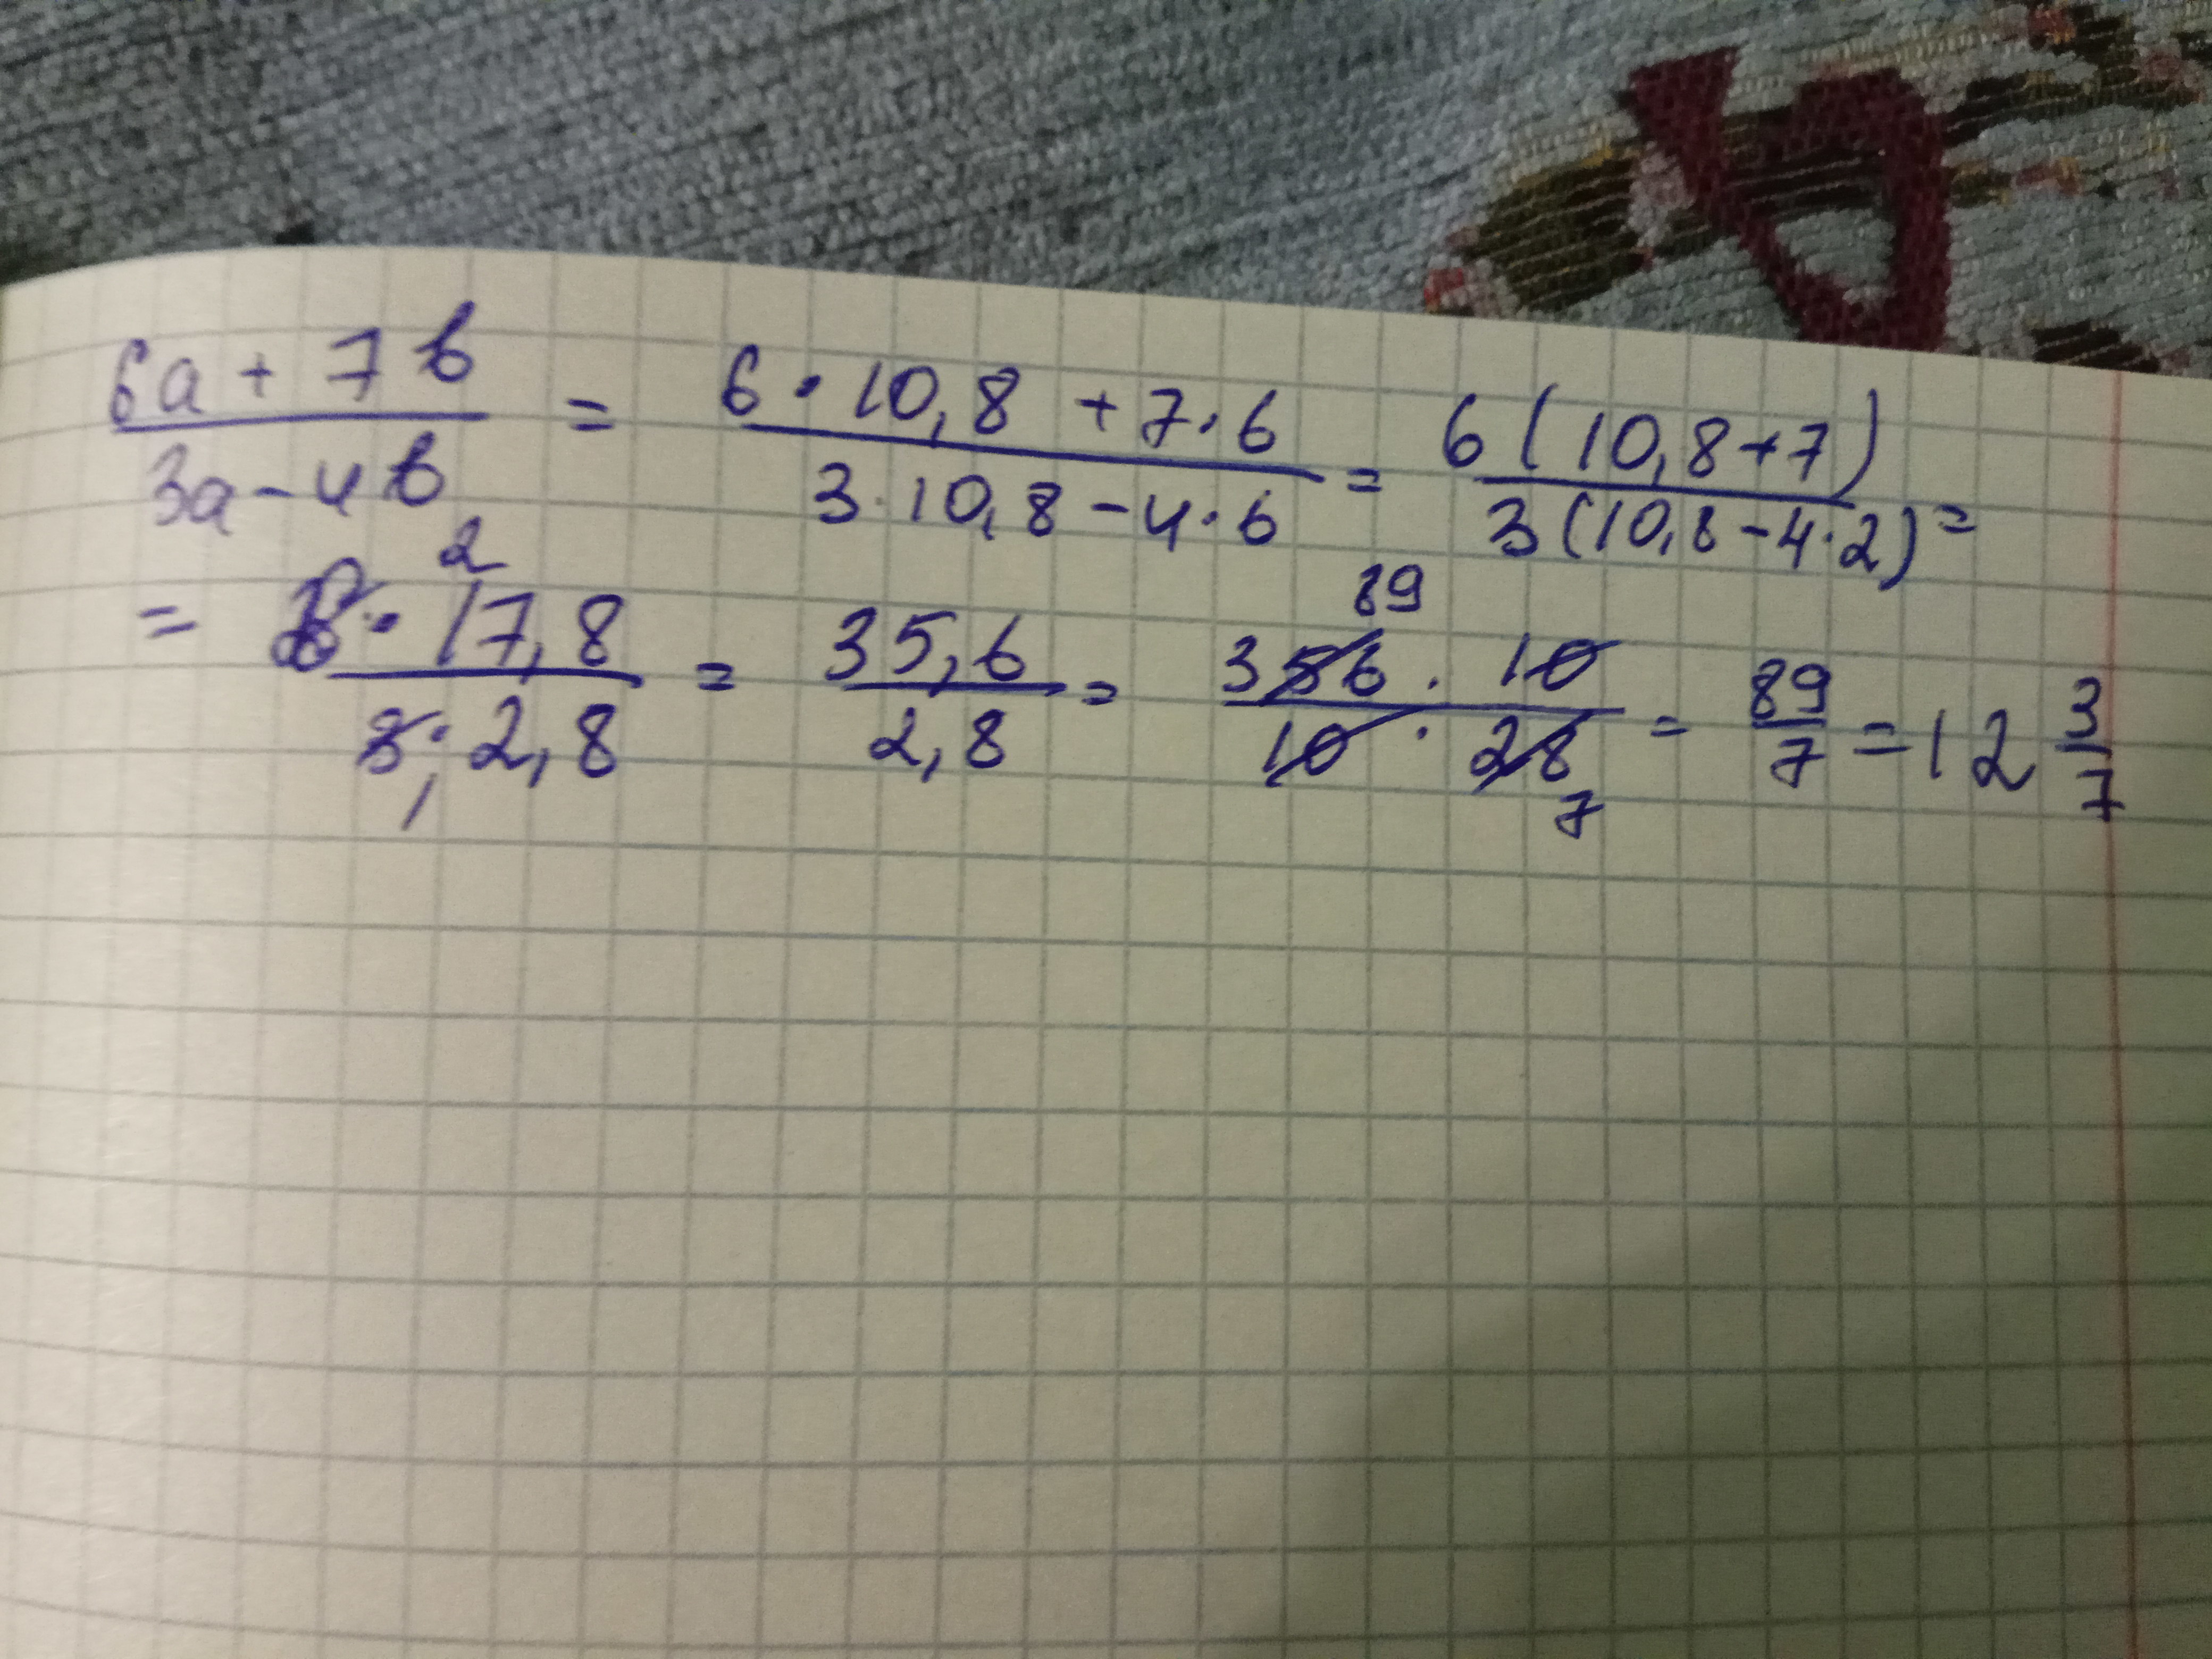 (6a + 7b)/(3a - 4b) = (6 · 10,8 + 7 · 6)/(3 · 10,8 - 4 · 6) = 6(10,8 + 7)/3(10,8 - 4 · 2) =
= 2 · 17,8/3 1 · 2,8 = 35,6/2,8 = 356 89 · 10/10 · 28 7 = 89/7 = 12 3/7